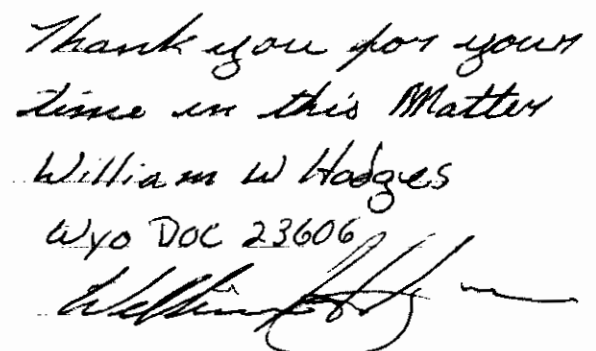 Thank you for your
time in this Matter
William W Hodges
Wyo DOC 23606
William